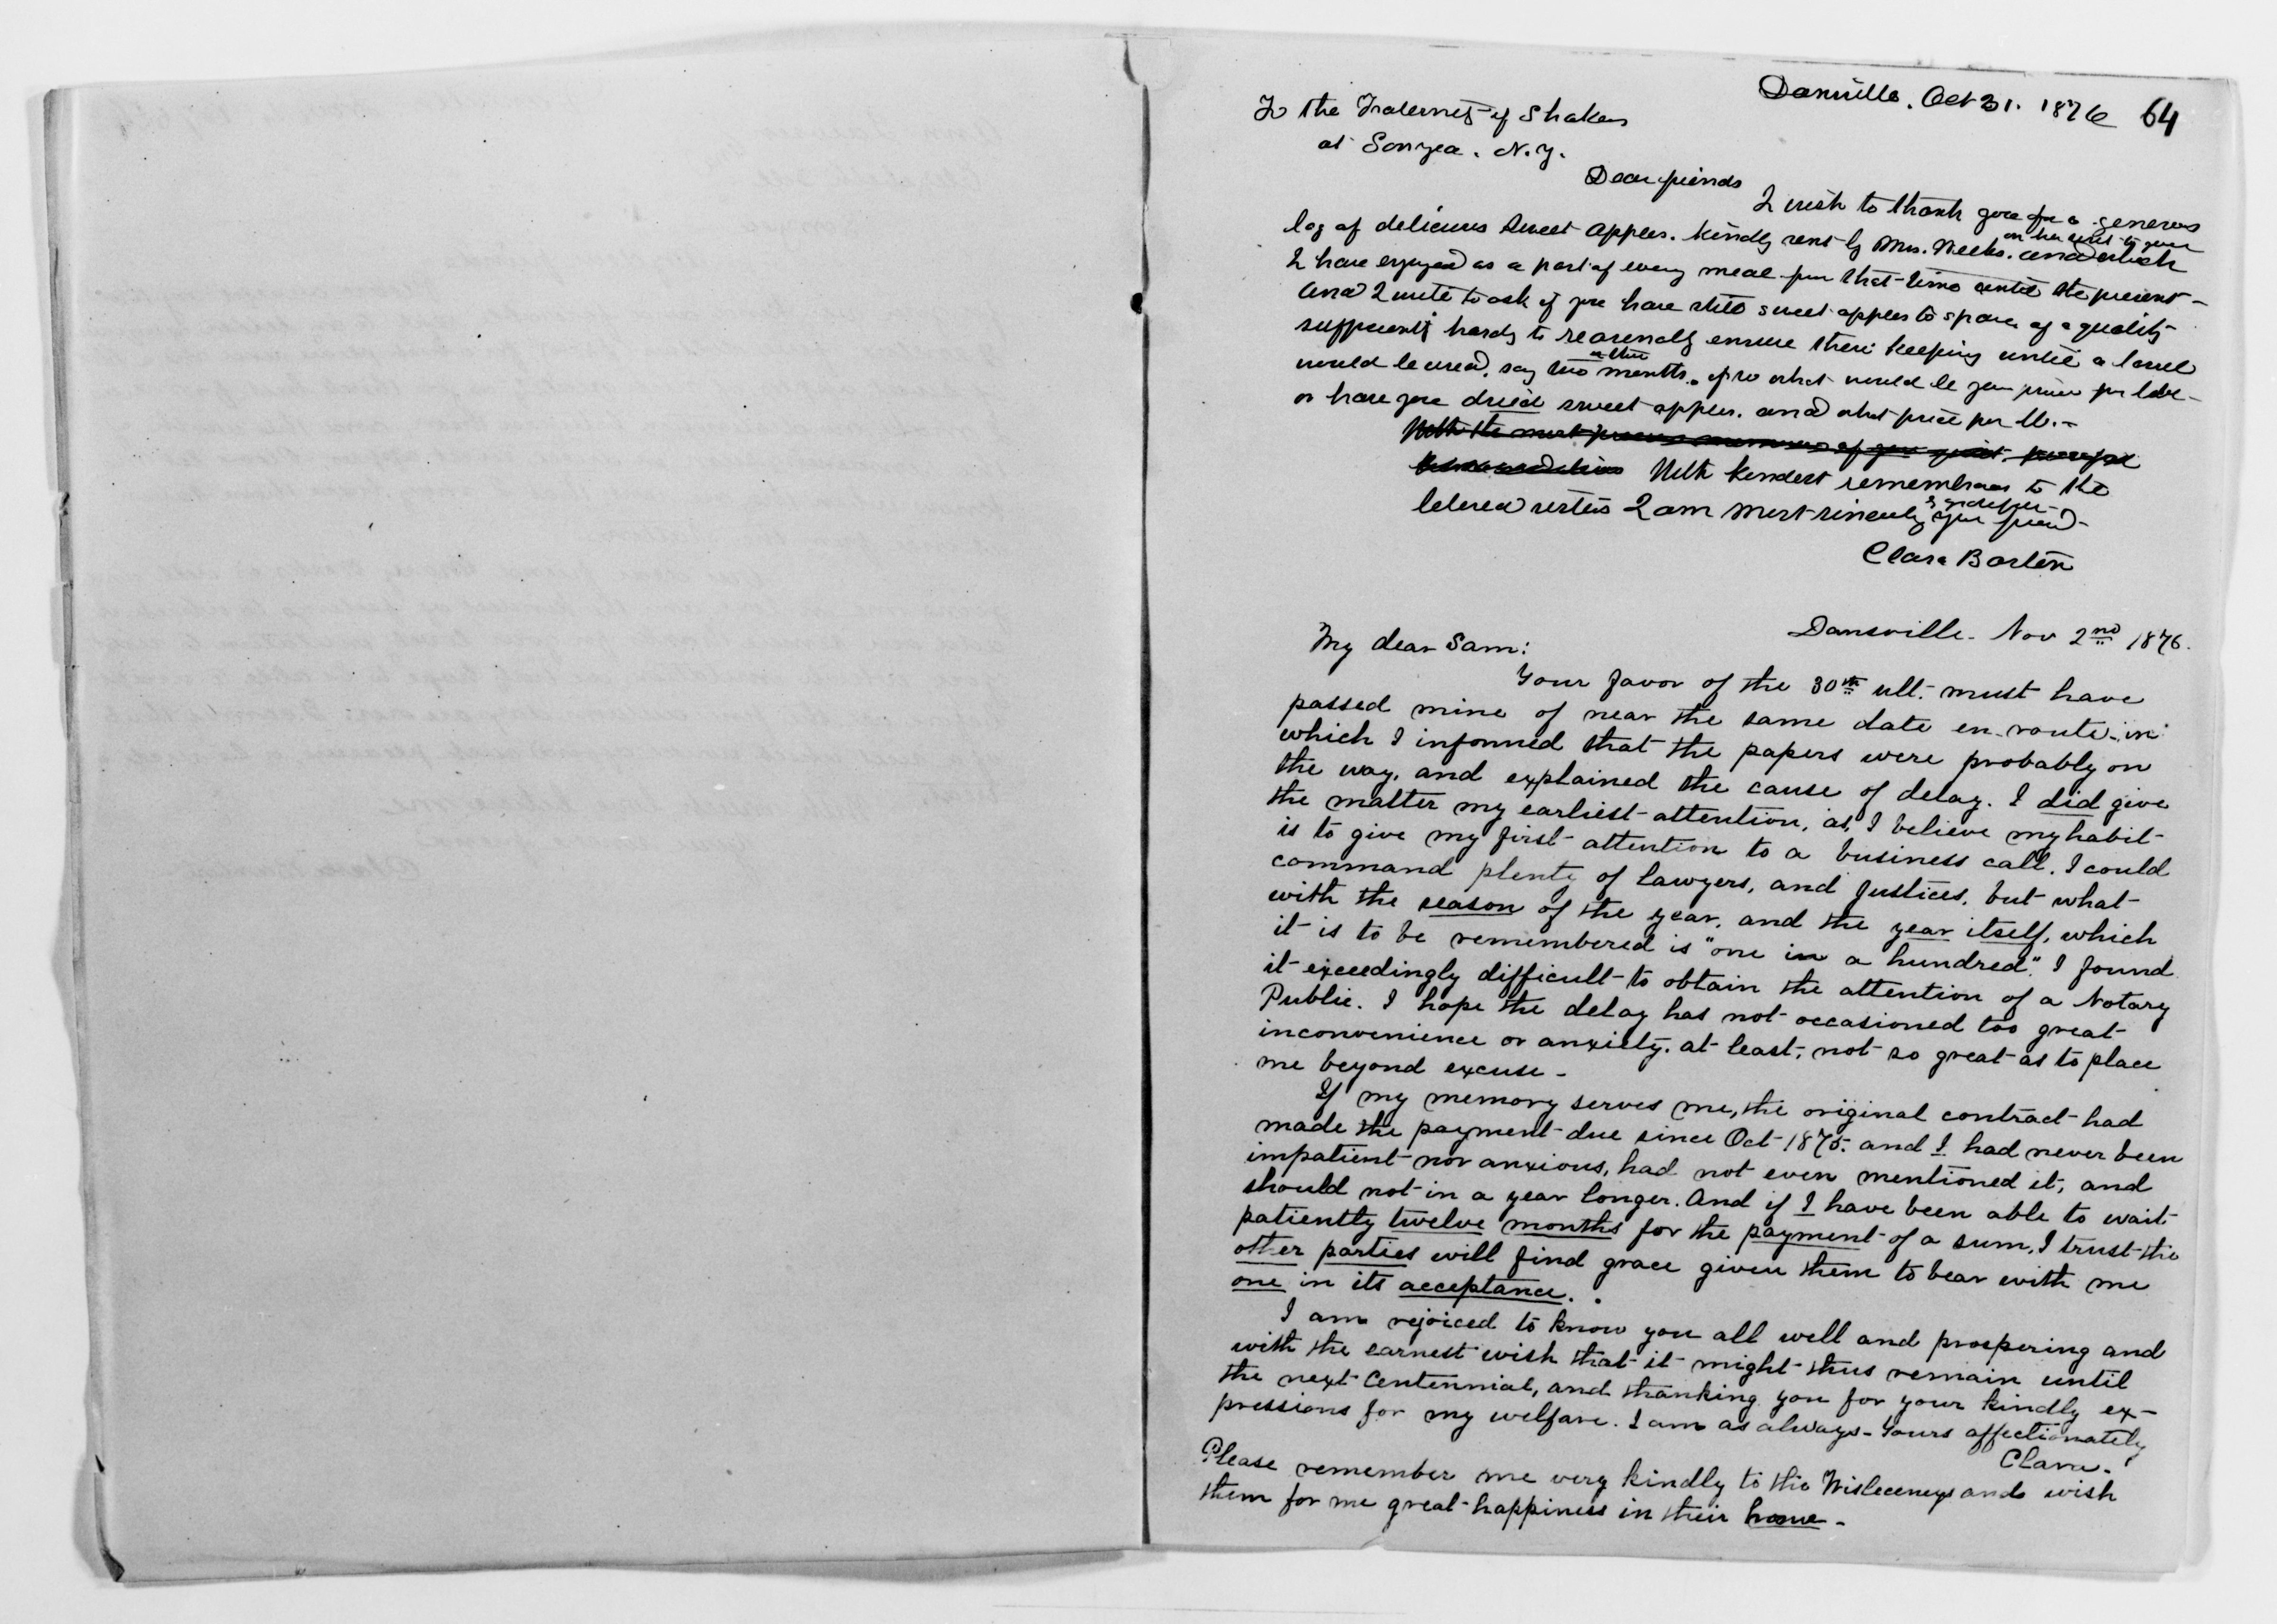 64
Dansville. Oct 31. 1876
To the Fraternity of Shakers
at Sonyea. N.Y.
Dear friends
I wish to thank you for a generous
bag of delicious sweet apples. kindly sent by Mrs. Weeks. on her visit to you and which
I have enjoyed as a part of every meal from that time until the present -
And I write to ask if you have still sweet apples to spare of a quality
sufficiently hardy to reasonably ensure their keeping until a barrel
would be used, say two or three months. if so what would be your price per bbl -
or have you dried sweet apples. and what price per lb. -
With the most memories of your quiet
With kindest remembrances to the
beloved sisters I am most sincerely your friend -
Clara Barton
Dansville. Nov 2nd 1876.
My dear Sam:
Your favor of the 30th ult. must have
passed mine of near the same date en-route - in
which I informed that the papers were probably on
the way, and explained the cause of delay. I did give
the matter my earliest attention, as, I believe my habit
is to give my first attention to a business call. I could
command plenty of lawyers, and Justices, but what
with the season of the year, and the year itself, which
it is to be remembered is "one in a hundred". I found
it exceedingly difficult to obtain the attention of a Notary
Public. I hope the delay has not occasioned too great
inconvenience or anxiety. at least, not so great as to place
me beyond excuse -
If my memory serves me, the original contract had
made the payment due since Oct 1875. and I had never been
impatient nor anxious, had not even mentioned it, and
should not in a year longer. And if I have been able to wait
patiently twelve months for the payment of a sum, I trust the
other parties will find grace given them to bear with me
one in its acceptance.
I am rejoiced to know you all well and prospering and
with the earnest wish that it might thus remain until
the next Centennial, and thanking you for your kindly ex-
pressions for my welfare. I am as always - Yours affectionately
Clara.
Please remember me very kindly to the and wish
them for me great happiness in their home -